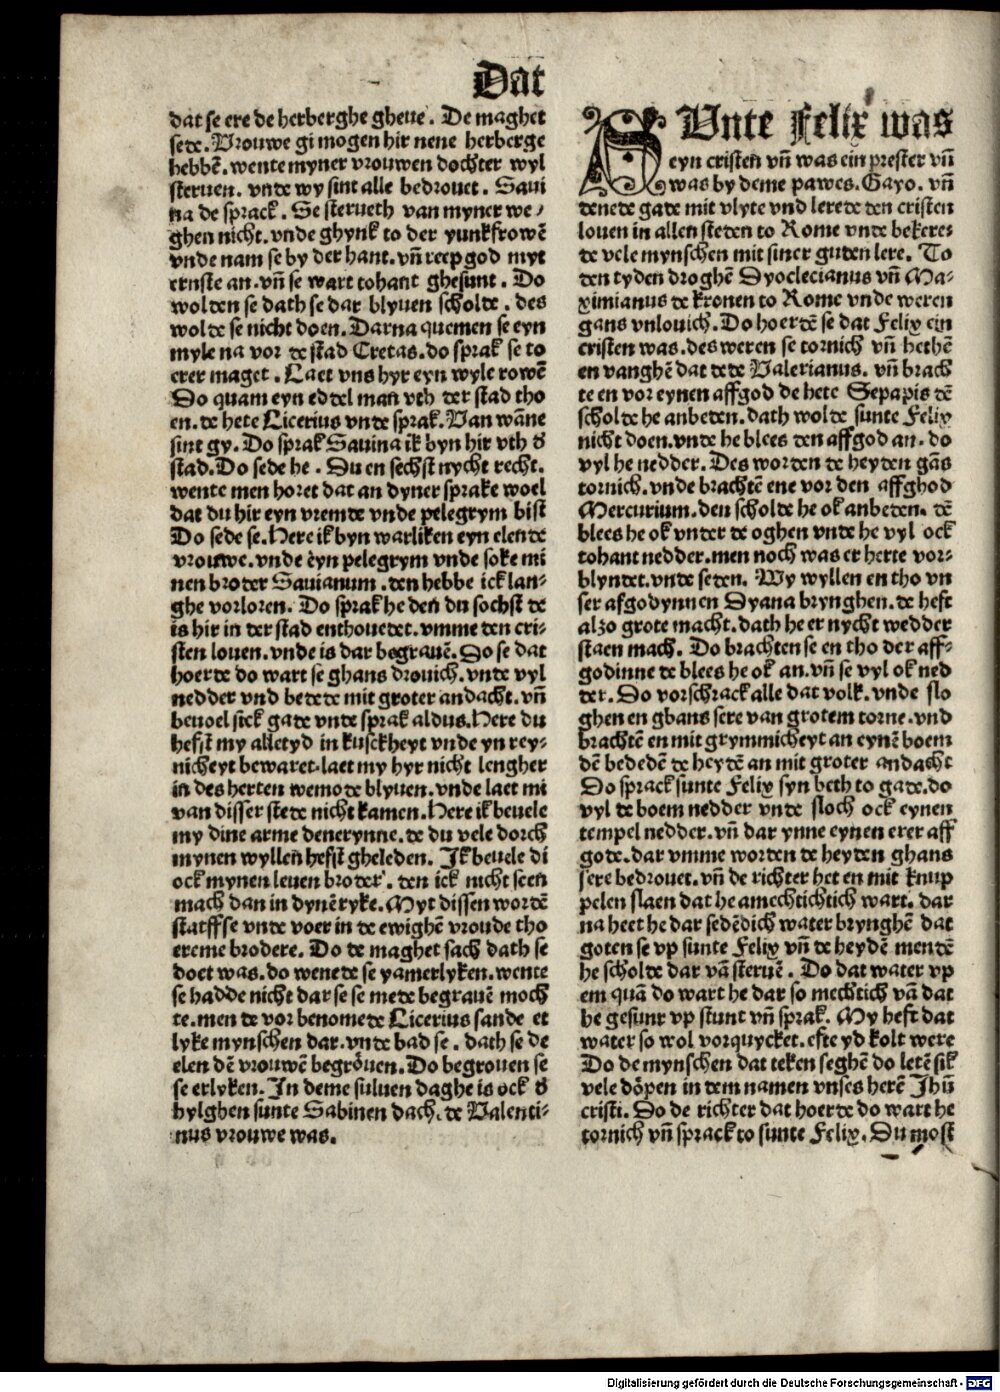 Dat
dat se ere de herberghe gheue. De maghet
sede. Vrouwe gi mogen hir nene herberge
hebbē. wente myner vrouwen dochter wyl
steruen. vnde wy sint alle bedrouet. Saui
na de sprack. Se sterueth van myner we/
ghen nicht. vnde ghynk to der yunkfrowē
vnde nam se by der hant. vn̄ reep god myt
ernste an. vn̄ se wart tohant ghesunt. Do
wolden se dath se dar blyuen scholde. des
wolde se nicht doen. Darna quemen se eyn
myle na vor de stad Cretas. do sprak se to
erer maget. Laet vns hyr eyn wyle rowē
Do quam eyn eddel man vth der stad tho
en. de hete Licerius vnde sprak. Van wāne
sint gy. Do sprak Sauina ik byn hir vth ď
stad. Do sede he. Du en sechst nycht recht.
wente men horet dat an dyner sprake woel
dat du hir eyn vremde vnde pelegrym bist
Do sede se. Here ik byn warliken eyn elende
vrouwe. vnde eyn pelegrym vnde soke mi
nen broder Sauianum. den hebbe ick lan-
ghe vorloren. Do sprak he den du sochst de
is hir in der stad enthouedet. vmme den cri-
sten louen. vnde is dar begrauē. Do se dat
hoerde do wart se ghans drouich. vnde vyl
nedder vnd bedede mit groter andacht. vn̄
beuoel sick gade vnde sprak aldus. Here du
hefst my alletyd in kusckheyt vnde yn rey-
nicheyt bewaret. laet my hyr nicht lengher
in des herten wemode blyuen. vnde laet mi
van disser stede nicht kamen. Here ik beuele
my dine arme denerynne. de du vele dorch
mynen wyllen hefst gheleden. Ik beuele di
ock mynen leuen broder. den ick nicht seen
mach dan in dynē ryke. Myt dissen wordē
starff se vnde voer in de ewighē vroude tho
ereme brodere. Do de maghet sach dath se
doet was. do wenede se yamerlyken. wente
se hadde nicht dar se se mede begrauē moch
te. men de vor benomede Licerius sande et
lyke mynschen dar. vnde bad se. dath se de
elen dē vrouwē begröuen. Do begrouen se
se erlyken. In deme suluen daghe is ock ď
hylghen sunte Sabinen dach. de Valenti-
nus vrouwe was.
SVnte Felix was
eyn cristen vn̄ was ein prester vn̄
was by deme pawes. Gayo. vn̄
denede gade mit vlyte vnd lerede den cristen
louen in allen steden to Rome vnde bekere-
de vele mynschen mit siner guden lere. To
den tyden droghē Dyoclecianus vn̄ Ma-
ximianus de kronen to Rome vnde weren
gans vnlouich. Do hoerdē se dat Felix ein
cristen was. des weren se tornich vn̄ hethē
en vanghē dat dede Valerianus. vn̄ brach
te en vor eynen affgod de hete Sepapis dē
scholde he anbeden. dath wolde sunte Felix
nicht doen. vnde he blees den affgod an. do
vyl he nedder. Des worden de heyden gās
tornich. vnde brachtē ene vor den affghod
Mercurium. den scholde he ok anbeden. dē
blees he ok vnder de oghen vnde he vyl ock
tohant nedder. men noch was er herte vor-
blyndet. vnde seden. Wy wyllen en tho vn
ser afgodynnen Dyana brynghen. de heft
alzo grote macht. dath he er nycht wedder
staen mach. Do brachten se en tho der aff-
godinne de blees he ok an. vn̄ se vyl ok ned
der. Do vorschrack alle dat volk. vnde slo
ghen en ghans sere van grotem torne. vnd
brachtē en mit grymmicheyt an eynē boem
dē bededē de heydē an mit groter andacht
Do sprack sunte Felix syn beth to gade. do
vyl de boem nedder vnde sloch ock eynen
tempel nedder. vn̄ dar ynne eynen erer aff
gode. dar vmme worden de heyden ghans
sere bedrouet. vn̄ de richter het en mit knup
pelen slaen dat he amechtichtich wart. dar
na heet he dar sedēdich water brynghē dat
goten se vp sunte Felix vn̄ de heydē mendē
he scholde dar vā steruē. Do dat water vp
em quā do wart he dar so mechtich vā dat
he gesunr vp stunt vn̄ sprak. My heft dat
water so wol vorquycket. efte yd kolt were
Do de mynschen dat teken seghē do letē sik
vele döpen in dem namen vnses herē Jhū
cristi. Do de richter dat hoerde do wart he
tornich vn̄ sprack to sunte Felix. Du most
Digitalisierung gefördert durch die Deutsche Forschungsgemeinschaft - DFG